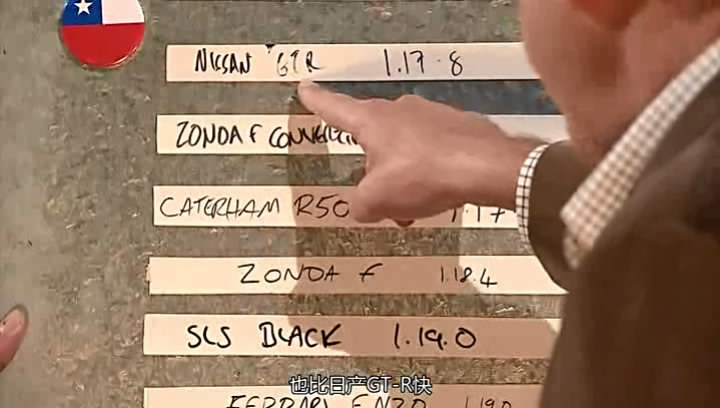 NISSAN GTR 1.17.8
ZONDA F
CATERHAM R50 1.17
ZONDA F 1.18.4
SLS BLACK 1.19.0
也比日产GT-R快
FERRARI ENZO 1.19.0